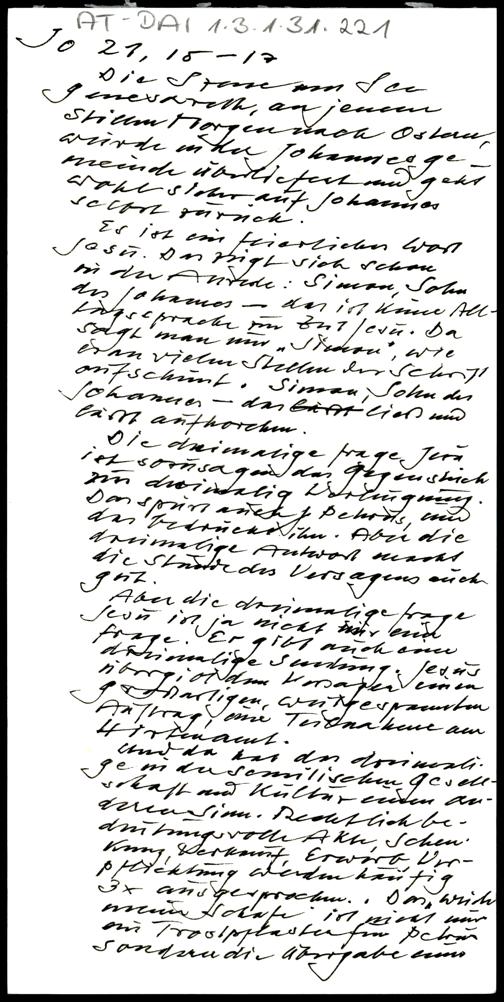 AT-DAI 1.3.1.31.221
Jo 21, 15-17
Die Szene am See
Genesareth, an jenem
stillen Morgen nach Ostern,
wurde in der Johannesge-
meinde überliefert und geht
wohl sicher auf Johannes
selbst zurück.
Es ist ein feierliches Wort
Jesu. Das zeigt sich schon
in der Anrede: Simon, Sohn
des Johannes - das ist keine All-
tagssprache zur Zeit Jesu. Da
sagt man nur "Simon", wie
er an vielen Stellen der Schrift
aufscheint. Simon, Sohn des
Johannes - das ließ und
lässt aufhorchen.
Die dreimalige Frage Jesu
ist sozusagen das Gegenstück
zur dreimalig Verleugnung.
Das spürt auch Petrus, und
das bedrückt ihn. Aber die
dreimalige Antwort macht
die Stunde des Versagens auch
gut.
Aber die dreimalige Frage
Jesu ist ja nicht nur eine
Frage. Er gibt auch eine
dreimalige Sendung. Jesus
übergibt dem Versager einen
großartigen, weitgespannten
Auftrag, eine Teilnahme am
Hirtenamt.
Und da hat das dreimali-
ge in der semitischen Gesell-
schaft und Kultur einen an-
deren Sinn. Rechtlich be-
deutungsvolle Akte, Schen-
kung, Verkauf, Erwerb, Ver-
pflichtung werden häufig
3x ausgesprochen. Das "weide
meine Schafe" ist nicht nur
ein Trostpflaster für Petrus
sondern die Übergabe eines